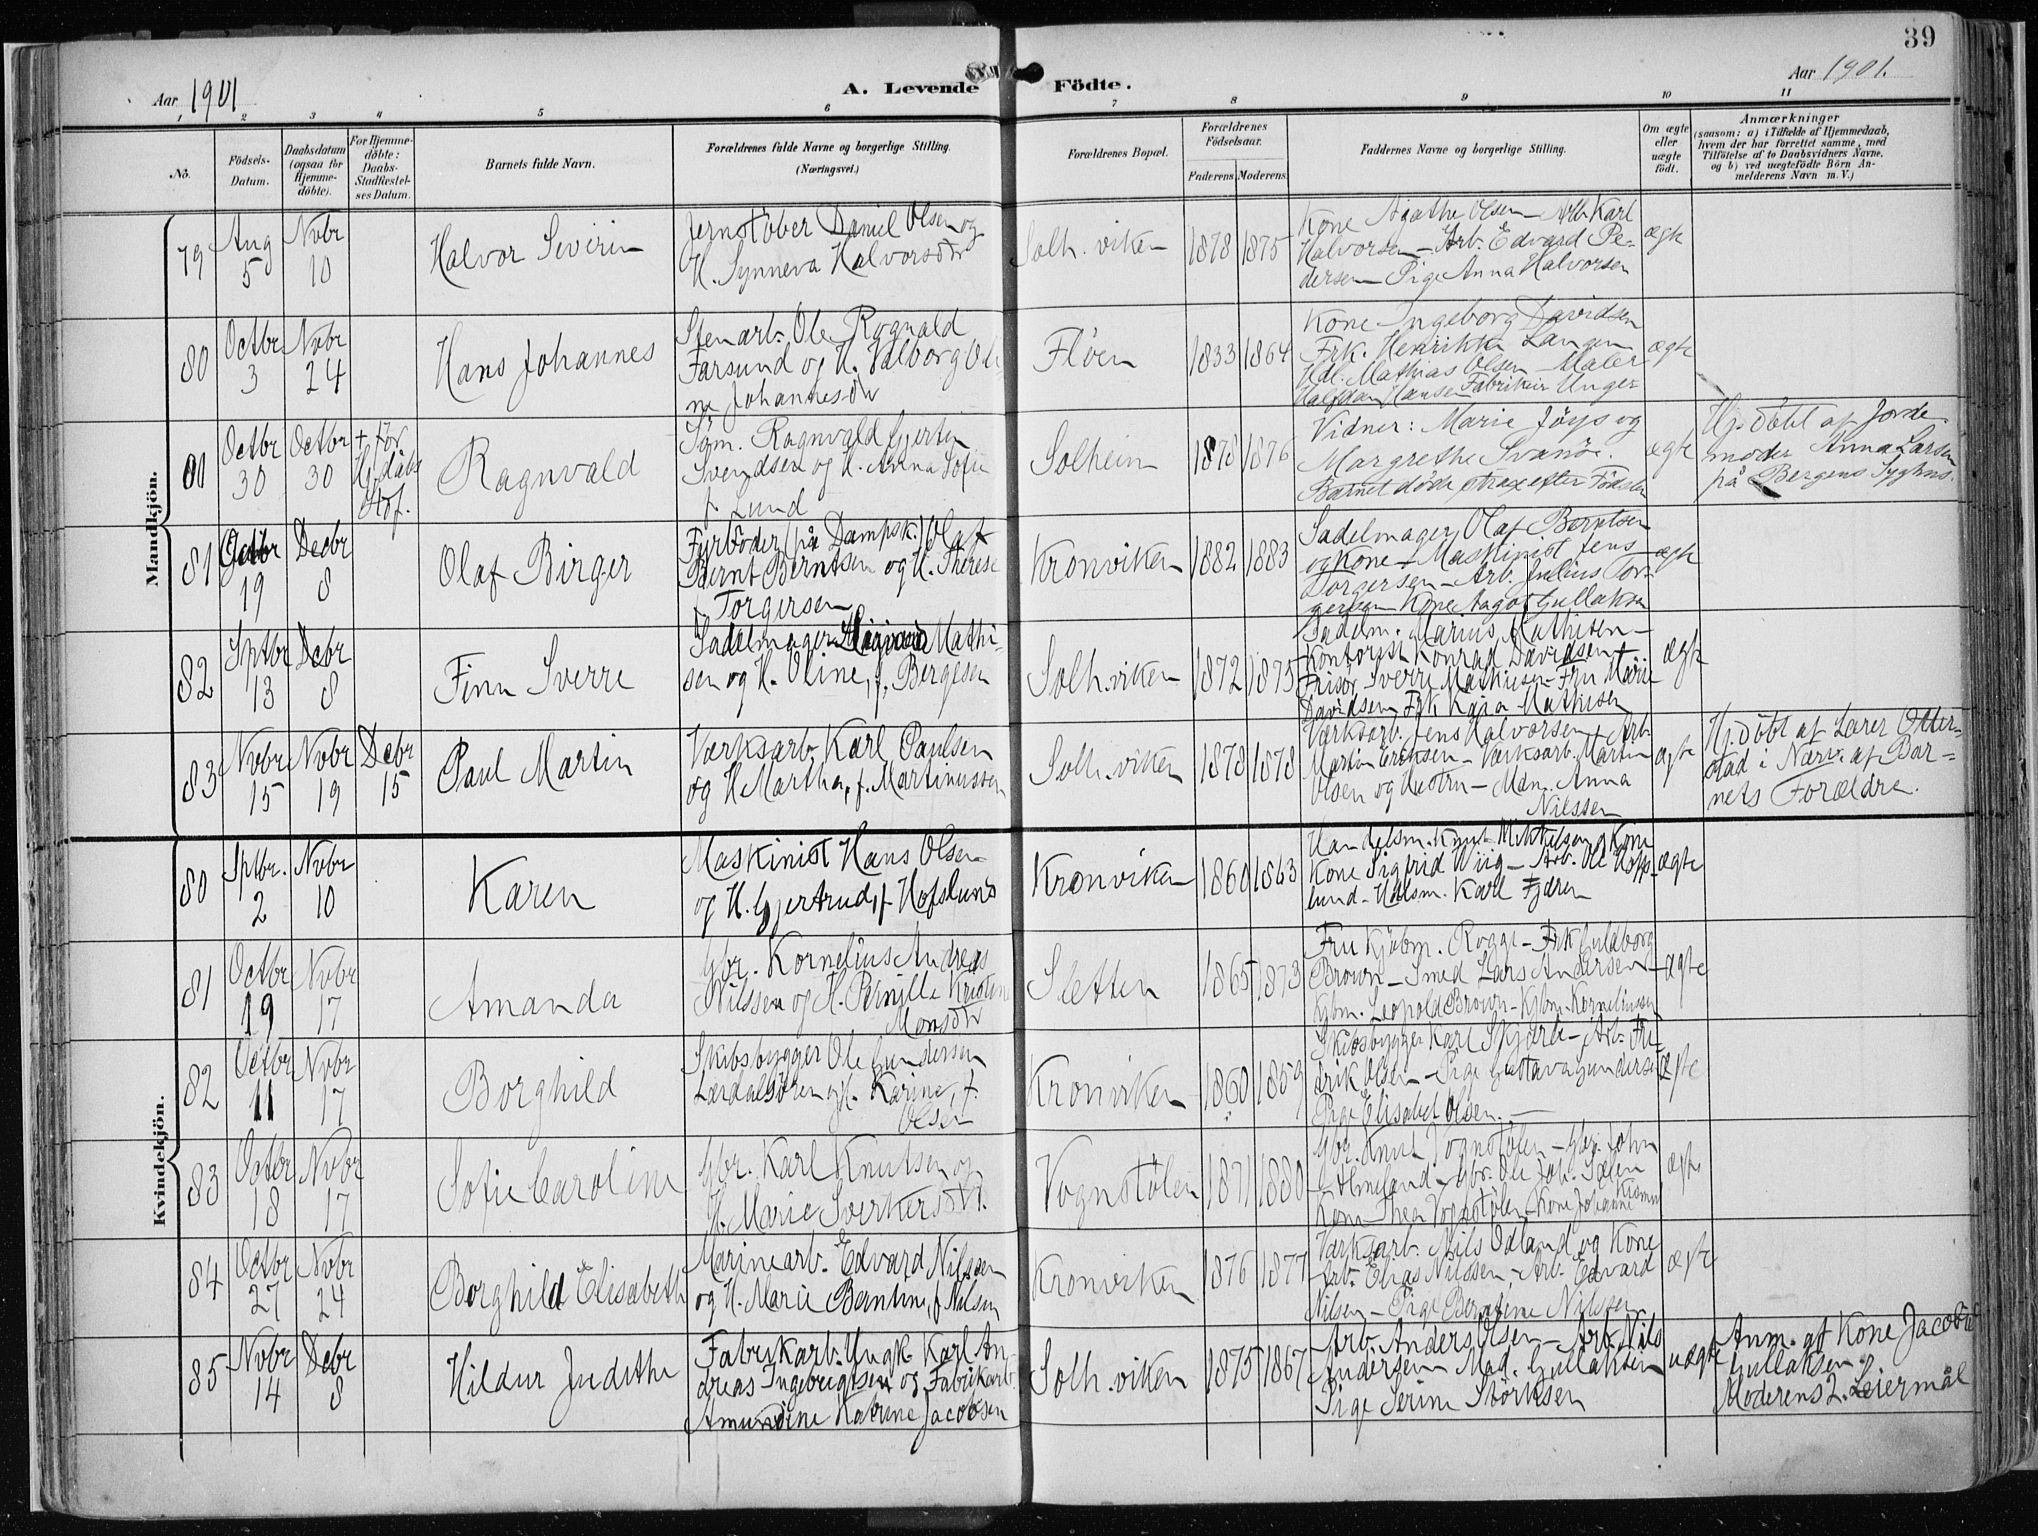 39
Aar 1901
A. Levende Födte.
Aar 1901.
1 2 3 4 5 6 7 8 9 10 11
No.
Födsels-
Datum.
Daabsdatum
(ogsaa for
Hjemme-
döbte).
For Hjemme-
döbte:
Daabs-
Stadfæstel-
ses Datum.
Barnets fulde Navn.
Forældrenes fulde Navne og borgerlige Stilling.
(Næringsvei.)
Forældrenes Bopæl.
Forældrenes
Födselsaar.
Faderens. Moderens.
Faddernes Navne og borgerlige Stilling.
Om ægte
eller
uægte
födt.
Anmærkninger
(saasom: a) i Tilfælde af Hjemmedaab,
hvem der har forrettet samme, med
Tilföielse af to Daabsvidners Navne,
og b) ved uægtefödte Börn An-
melderens Navn m. V.)
Mandkjön.
79
Aug
5
Novbr
10
Halvor Severin
Jernstöber Daniel Olsen og
H. Synneva Halvorsdtr
Solh. viken
1878 1875
Kone Agathe Olsen – Arb. Karl
Halvorsen – Arb. Edvard Pe-
dersen – Pige Anna Halvorsen
ægte
80
Octbr
3
Novbr
24
Hans Johannes
Stenarb. Ole Rognald
Farsund og H. Valborg Oli
ne Johannesdtr
Flöen
1833 1864
Kone Ingeborg Davidsen
Frk. Henrikke Langen
Hdl. Mathias Olsen – Maler
Halfdan Hansen Fabrikeier Unger
ægte
Octbr
30
Octbr
30
Ragnvald
Söm. Ragnvald Gjertin
Svendsen og H. Anna Sofie
f. Lund
Solheim
1878 1876
Vidner: Marie Jöys og
Margrethe Svanöe.
Barnet döde strax efter Födslen
ægte
Hj. döbt af Jorde
moder Anna Larsen
på Bergens Sygehus.
81
Octbr
19
Decbr
8
Olaf Birger
Fyrböder på Dampsk. Olaf
Bernt Berntsen og H. Therese
f. Torgersen
Kronviken
1882 1883
Sadelmager Olaf Berntsen
og Kone – Maskinist Jens
Torgersen – Arb. Julius Tor-
gersen Kone Aagot Gullaksen
ægte
82
Sptbr
13
Decbr
8
Finn Sverre
Sadelmager Mathi-
sen og H. Oline, f. Bergesen
Solh. viken
1872 1875
Sadelm. Marius Mathisen –
Kontorist Konrad Davidsen
Frisör Sverre Mathisen – Fru Marie
Davidsen Frk Kaja Mathisen
ægte
83
Novbr
15
Novbr
19
Decbr
15
Paul Martin
Værksarb. Karl Paulsen
og H Martha, f. Martinussen
Solh. viken
1878 1878
Værksarb. Jens Halvorsen – Arb.
Martin Eriksen – Værksarb. Martin
Olsen og Hustru – Mdm. Anna
Nilssen
ægte
Hj. döbt af Lærer Otter-
stad i Nærv. af Bar-
nets Forældre.
Kvindekjön.
80
Sptbr.
2
Novbr
10
Karen
Maskinist Hans Olsen
og H. Gjertrud, f. Hofslund
Kronviken
1860 1863
Handelsm. Knut Mikkelsen, Kone
Kone Sigfrid Wiig – Arb. Ole Hofs
lund – Hdlsm. Karl
ægte
81
Octbr
19
Novbr
17
Amanda
Gbr. Kornelius Andreas
Nilssen og H. Pernille Kristine
Monsdtr
Sletten
1865 1873
Fru Kjöbm. Rogge – Frk Guldborg
Brown – Smed Lars Andersen
Kjbm. Leopold Brown – Kjbm. Korneliussen
ægte
82
Octbr
11
Novbr
17
Borghild
Skibsbygger Ole Gundersen
Lærdalsören og H. Karine, f.
Olsen
Kronviken
1860 1859
Skibsbygger Karl – Arb. Fre-
drik Olsen – Pige Gustava Gundersen
Pige Elisabet Olsen. –
ægte
83
Octbr
18
Novbr
17
Sofie Caroline
Gbr. Karl Knutsen og
H. Marie Sverkersdtr.
Vognstölen
1871 1880
Gbr. Knut Vognstölen – Gbr. John
Almeland – Gbr. Ole Joh. Sælen
Kone Thea Vognstölen – Kone Johanne
ægte
84
Octbr
27
Novbr
24
Borghild Elisabeth
Marinearb. Edvard Nilssen
og H. Marie Berntine, f. Nilsen
Kronviken
1876 1877
Værksarb. Nils Odland og Kone
Arb. Elias Nilssen – Arb. Edvard
Nilsen – Pige Berntine Nilssen
ægte
85
Novbr
14
Decbr
8
Hildur Judithe
Fabrikarb. Ungk. Karl An-
dreas Ingebrigtsen og Fabrikarb.
Amundine Katrine Jacobsen
Solh. viken
1875 1867
Arb. Anders Olsen – Arb. Nils
Andersen Mad. Gullaksen
Pige Serine Störksen
uægte
Anm. af Kone Jacobine
Gullaksen.
Moderens 2. Leiermål